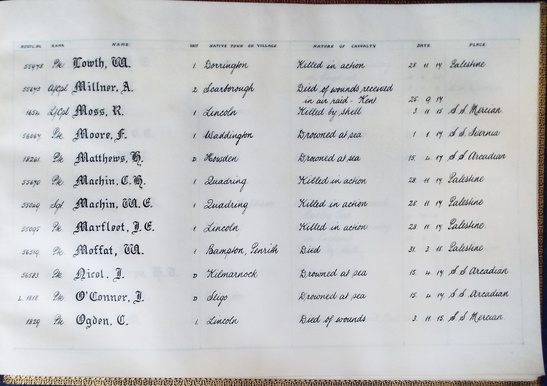 REGTL. NO. RANK NAME UNIT NATIVE TOWN OR VILLAGE NATURE OF CASUALTY DATE PLACE
Pte Lowth, W. 1 Dorrington Killed in action 28 11 17 Palestine
Millner, A. 2 Scarborough Died of wounds received
in air raid - Kent 25 9 17
L/Cpl Moss, R. 1 Lincoln Killed by shell 3 11 15 S S Mercian
Pte Moore, F. 1 Waddington Drowned at sea 1 1 17
Pte Matthews, H. D Howden Drowned at sea 15 4 17 S S Arcadian
Pte Machin, C. H. 1 Quadring Killed in action 28 11 17 Palestine
Sgt Machin, W. E. 1 Quadring Killed in action 28 11 17 Palestine
Pte Marfleet, J. E. 1 Lincoln Killed in action 28 11 17 Palestine
Pte Moffat, W. 1 Bampton, Penrith Died 31 3 18 Palestine
Pte Nicol, J. D Kilmarnock Drowned at sea 15 4 17 S S Arcadian
Pte O'Connor, J. D Sligo Drowned at sea 15 4 17 S S Arcadian
1829 Pte Ogden, C. 1 Lincoln Died of wounds 3 11 15 S S Mercian